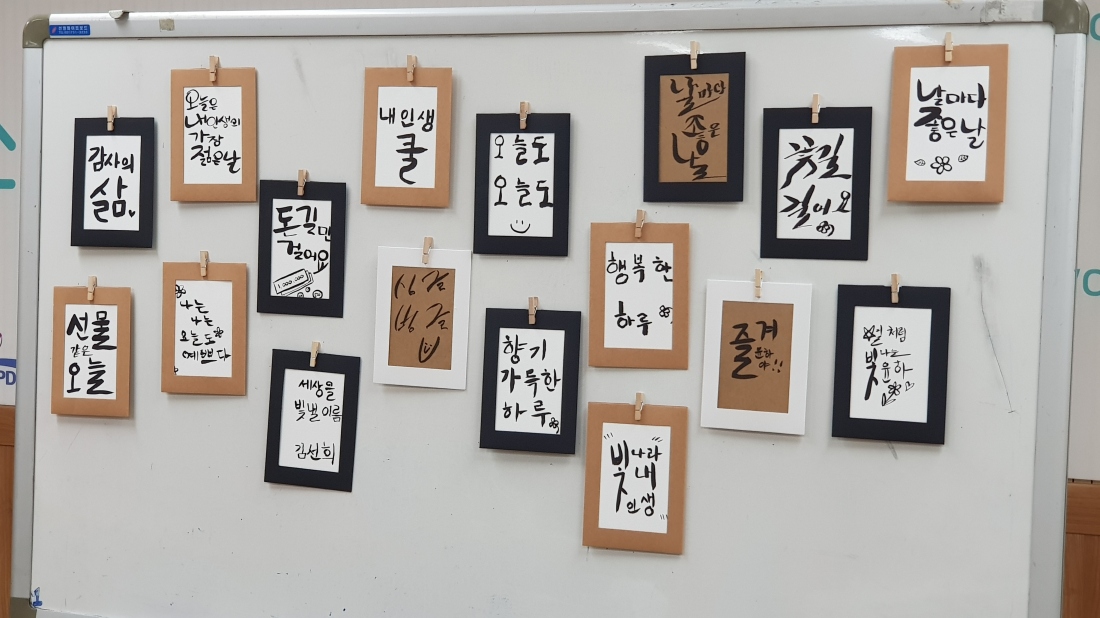 감사의
삶
오늘은
내인생의
가장
젊은날
내 인생
쿨
오늘도
오늘도
날마다
좋은
날
꽃길
걸어요
날마다
좋은날
돈길만
걸어요
선물
같은
오늘
나는
나는
오늘도
예쁘다
싱글
벙글
행복한
하루
향기
가득한
하루
즐겨
윤하
야!!
처럼
빛나는
윤하
세상을
빛낼이름
김선희
빛나라
내
인생